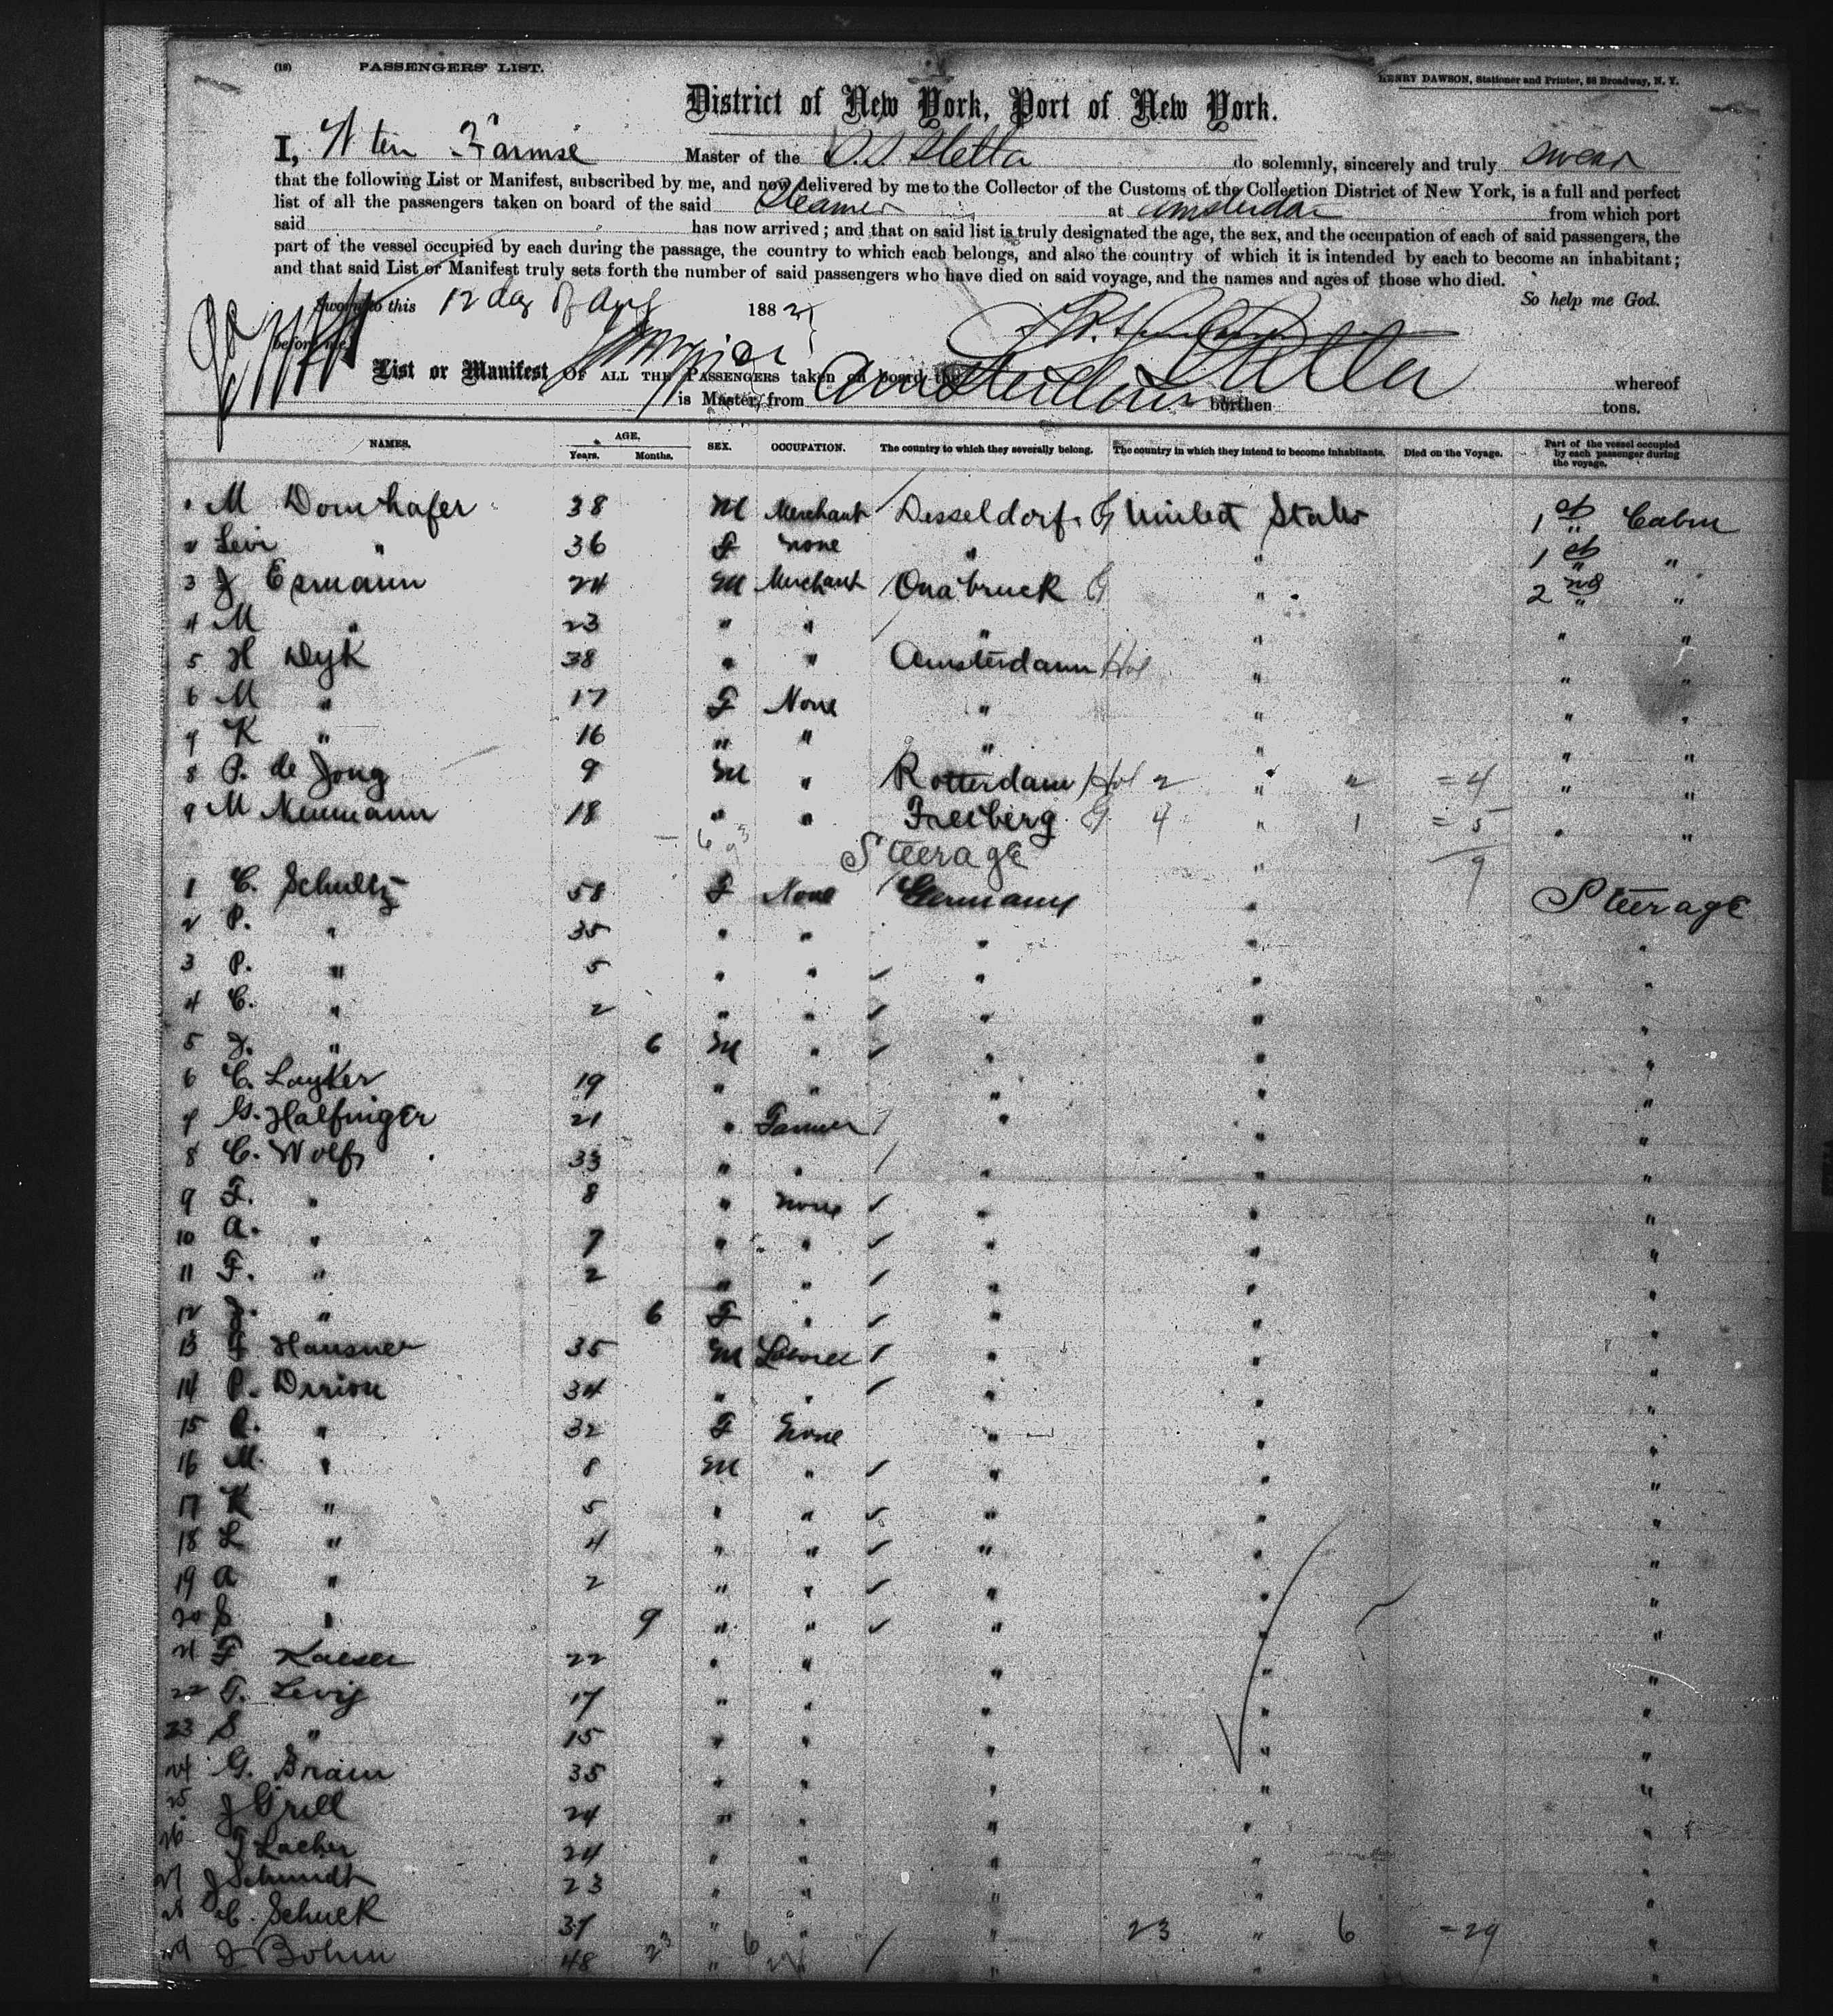 (18) PASSENGERS' LIST.
HENRY DAWSON, Stationer and Printer, 28 Broadway, N. Y.
District of New York, Port of New York.
I, Master of the S.S. Stella do solemnly, sincerely and truly swear
that the following List or Manifest, subscribed by me, and now delivered by me to the Collector of the Customs of the Collection District of New York, is a full and perfect
list of all the passengers taken on board of the said Steamer at Amsterdam from which port
said has now arrived; and that on said list is truly designated the age, the sex, and the occupation of each of said passengers, the
part of the vessel occupied by each during the passage, the country to which each belongs, and also the country of which it is intended by each to become an inhabitant;
and that said List or Manifest truly sets forth the number of said passengers who have died on said voyage, and the names and ages of those who died.
So help me God.
Sworn to this 12 day of Aug 188
before me
List or Manifest OF ALL THE PASSENGERS taken on board the Stella whereof
is Master, from Amsterdam burthen tons.
NAMES. AGE. Years. Months. SEX. OCCUPATION. The country to which they severally belong. The country in which they intend to become inhabitants. Died on the Voyage. Part of the vessel occupied by each passenger during the voyage.
1 M Domhafer 38 M Merchant Desseldorf G United States 1st Cabin
2 Levi " 36 F None " " 1st " "
3 J Esmann 24 M Merchant Onabruck G " 2nd " "
4 M " 23 " " " " " "
5 H Dyk 38 " " Amsterdam Hol " " "
6 M " 17 F None " " " "
7 K " 16 " " " " " "
8 P. de Jong 9 M " Rotterdam Hol 2 " 2 = 4 " "
9 M Neumann 18 " " Freiberg G 4 " 1 = 5 " "
Steerage " 9
1 C. Schultz 58 F None Germany " Steerage
2 P. " 35 " " " " "
3 P. " 5 " " " " "
4 C. " 2 " " " " "
5 J. " 6 M " " " "
6 C. Layker 19 " " " " "
7 G. Halfinger 21 " Farmer " " "
8 C. Wolf 33 " " " " "
9 F. " 8 " None " " "
10 A. " 7 " " " " "
11 F. " 2 " " " " "
12 J. " 6 F " " " "
13 F Hausner 35 M " " "
14 P. Dirion 34 " " " " "
15 " 32 F None " " "
16 M. " 8 M " " " "
17 K " 5 " " " " "
18 L " 4 " " " " "
19 A " 2 " " " " "
20 S " 9 " " " " "
21 F Kaeser 22 " " " " "
22 T. Levij 17 " " " " "
23 S " 15 " " " " "
24 G. 35 " " " " "
25 J Grill 24 " " " " "
26 Lacher 24 " " " " "
27 J Schmidt 23 " " " " "
28 C. Schuck 37 " " " 23 " 6 = 29 "
29 J Bohm 48 23 " 6 " " "